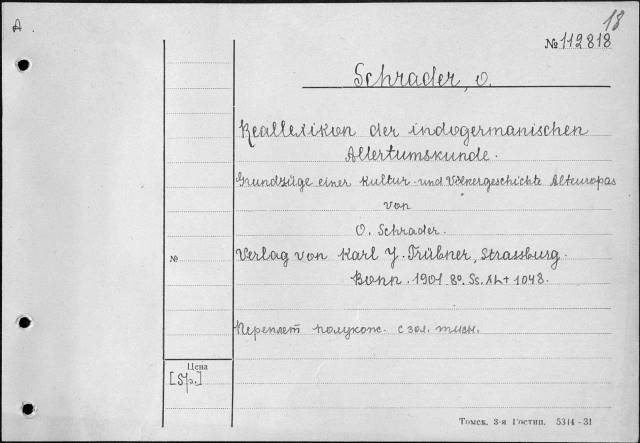 A
18
№ 112818
Schrader, O.
Reallexikon der indogermanischen
Altertumskunde.
Grundzüge einer Kultur- und Völkergeschichte Alteuropas
von
O. Schrader.
Verlag von Karl J. Trübner, Strassburg.
Bonn. 1901 8º. Ss. XL + 1048.
№
Переплет полукож. с зол. тисн.
Цена
[5р.]
Томск. 3-я Гостип. 5314-31